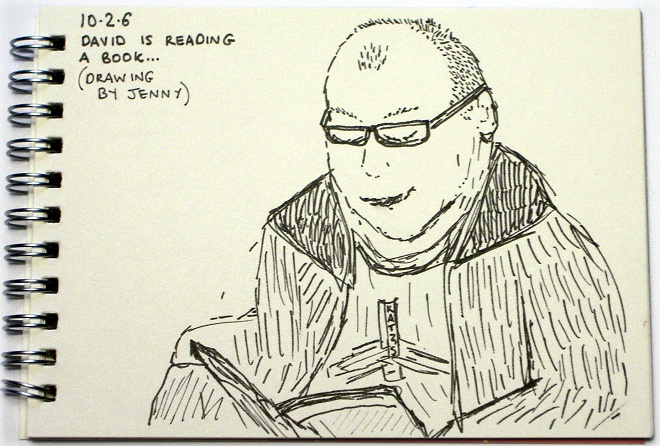 10-2-6
DAVID IS READING
A BOOK...
(DRAWING
BY JENNY)